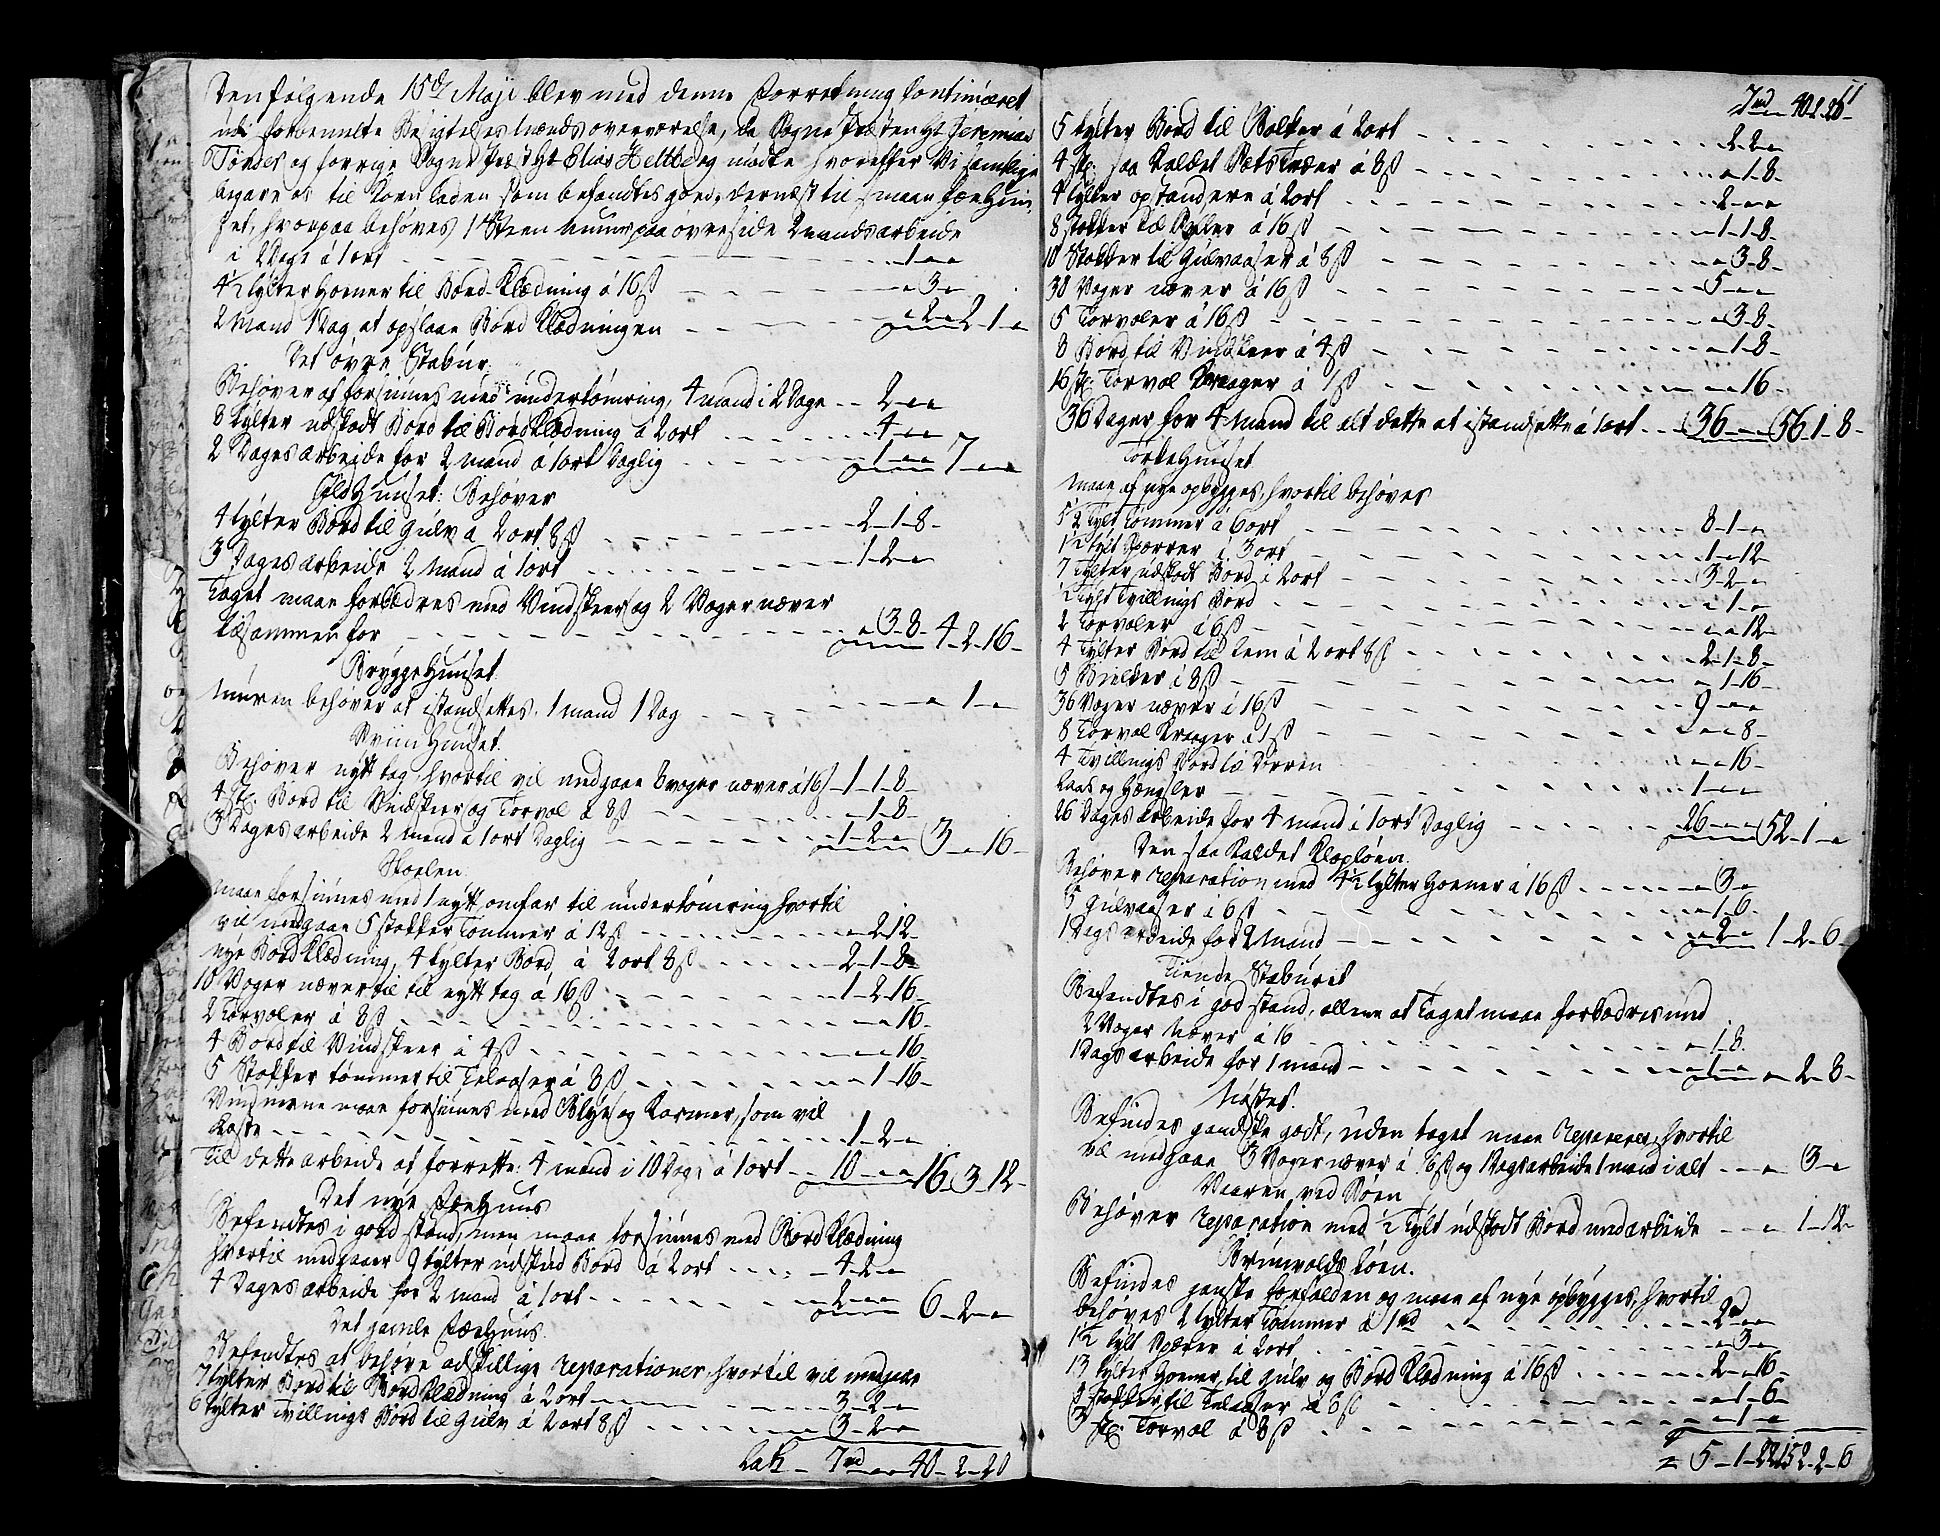 Den følgende 15de Maji blev med denne Forretning Continueret
udi forbemelte Besigtelses mænds overværelse, da Sogne Præsten Hr Jeremias
og forrige Sogne Præst Hr Elias Heltberg mødte hvorefter Vi samtlige
begave os til Korn Laden som befandtes goed, dernæst til smaae Fæe Huu-
set, hvorpaa behøves 1 Steen muur paa øvre side 2 mands arbeide
i 2 Dage á 1 ort - - - 1 - -
4½ tylter Houner til Bord Klædning á 16 ß - - 3 -
2 Mand 1 Dag at opslaae Bord Klædningen - - 2 - 2 - 1 -
Det øvre Stabur
Behøver at forsiunes med undertømring, 4 mand i 2 Dage - 2 - -
8 tylter udskodt Bord til Bord Klædning á 2 ort - 4 - -
2 Dages arbeide for 2 mand á 1 ort Daglig - 1 - - 7 - -
Ild Huuset: Behøver
4 tylter Bord til gulv a 2 ort 8 ß - 2 - 1 - 8 -
3 Dages arbeide 2 Mand á 1 ort - 1 - 2 -
Taget maae forbedres med Vindskeer og 2 Voger næver
tilsammen for - 3 - 8 - 4 - 2 - 16 -
Brygge Huuset
muren behøver at istandsettes. 1 mand 1 Dag - 1 -
Sviin Huuset.
Behøver nytt tag, hvortil vil medgaae 8 voger næver á 16 ß 1 - 1 - 8 -
4 st: Bord til Vindskeer og Torvol á 8 ß - 1 - 8 -
3 Dages arbeide 2 mand á 1 ort Daglig - 1 - 2 - 3 - 16 -
Skoelen
maae forsiunes med 1 nytt omfar til undertømring hvortil
vil medgaae 5 stokker Tømmer á 12 ß - 2 12 -
nye Bord Klædning, 4 tylter Bord á 2 ort 8 ß - 2 - 1 - 8
10 Voger næver til nytt tag á 16 ß - 1 - 2 - 16 -
2 Torvoler á 8 ß - 16 -
4 Bord til Vindskeer á 4 ß - 16 -
5 Stokker tømmer til Teleaaser á 8 ß - 1 - 16 -
Vinduerne maae forsiunes med Blye og Karmer, som vil
Koste - 1 - 2 -
Til dette arbeide at forrette: 4 mand i 10 Dage á 1 ort - 10 - - 16 - 3 - 12 -
Det nye Fæe Huus
Befandtes i goed stand, men maae forsiunes med Bord Klædning
hvortil medgaaer 9 tylter udskud Bord á 2 ort - 4 - 2 -
4 Dages arbeide for 2 mand á 1 ort - 2 - - 6 - 2 -
Det gamle Fæe Huus.
Befandtes at behøve adskillige reparationer, hvortil vil medgaae
7 tylter Bord til Bord Klædning á 2 ort - 3 - 2 -
6 tylter tvillings Bord til gulv á 2 ort 8 ß - 3 - 2 -
Lat: - 7 rd - 40 - 2 - 20
7 rd 40 2 20
5 tylter Bord til Balker á 2 ort - 2 - 2 -
4 st: saa kaldet á 8 ß - 1 - 8 -
4 tylter opstandere á 2 ort - 2 - -
8 Stokker til Syler á 16 ß - 1 - 1 - 8 -
10 Stokker til gulvaaser á 8 ß - 3 - 8 -
30 Voger næver á 16 ß - 5 - -
5 Torvoler á 16 ß - 3 - 8 -
8 Bord til Vindskeer á 4 ß - 1 - 8 -
16 st: Torvol Krager á 1 ß - 16 -
36 Dager for 4 Mand til alt dette at istandsette á 1 ort - 36 - - 56 - 1 - 8 -
Torke Huuset
maae af nye opbygges, hvortil behøves
5½ Tylt Tømmer á 6 ort - 8 - 1 -
1½ tylt Sperrer á 3 ort - 1 - 12 -
7 Tylter udskodt Bord á 2 ort - 3 - 2 -
½ Tylt Tvillings Bord - 1 -
2 Torvoler á 6 ß - 12 -
4 Tylter Bord til Lem á 2 ort 8 ß - 2 - 1 - 8 -
5 Bielker á 8 ß - 1 - 16 -
36 Voger næver á 16 ß - 9 - -
8 Torvol Krager á 1 ß - 8 -
4 Tvillings Bord til Dørren - 16 -
Laas og Hængsler - 1 - -
26 Dages arbeide for 4 mand á 1 ort Daglig - 26 - - 52 - 1 -
Den saa Kaldet Kløploen
Behøver reparation med 4½ tylter Houner á 16 ß - 3 -
5 gulvaaser á 6 ß - 1 - 6 -
1 Dags arbeide for 2 Mand - 2 - 1 - 2 - 6 -
Tiende Staburet
Befandtes i god stand, allene at Taget maae forbedres med
2 Voger Næver á 16 - 1 - 8 -
1 Dags arbeide for 1 mand - 1 - 2 - 8 -
Nøstet.
Befindes gandske godt, uden taget maae repareres, hvortil
vil medgaae 3 Voger næver á 16 ß og 1 Dags arbeide 1 mand i alt - 3 -
Vaaren ved Søen
Behøver reparation med ½ Tylt udskodt Bord med arbeide - 1 - 12 -
Loen.
Befindes ganske forfalden og maae af nye opbygges, hvortil
behøves 2 tylter Tømmer á 1 rd - 2 rd - -
1½ tylt Sperrer á 2 ort - 3 -
13 tylter Houner til gulv og Bord Klædning á 16 ß - 2 - 16 -
5 stokker til Teleaaser á 6 ß - 1 - 6 -
3 st: Torvol á 8 ß - 1 -
5 - 1 - 22 152 - 2 - 6